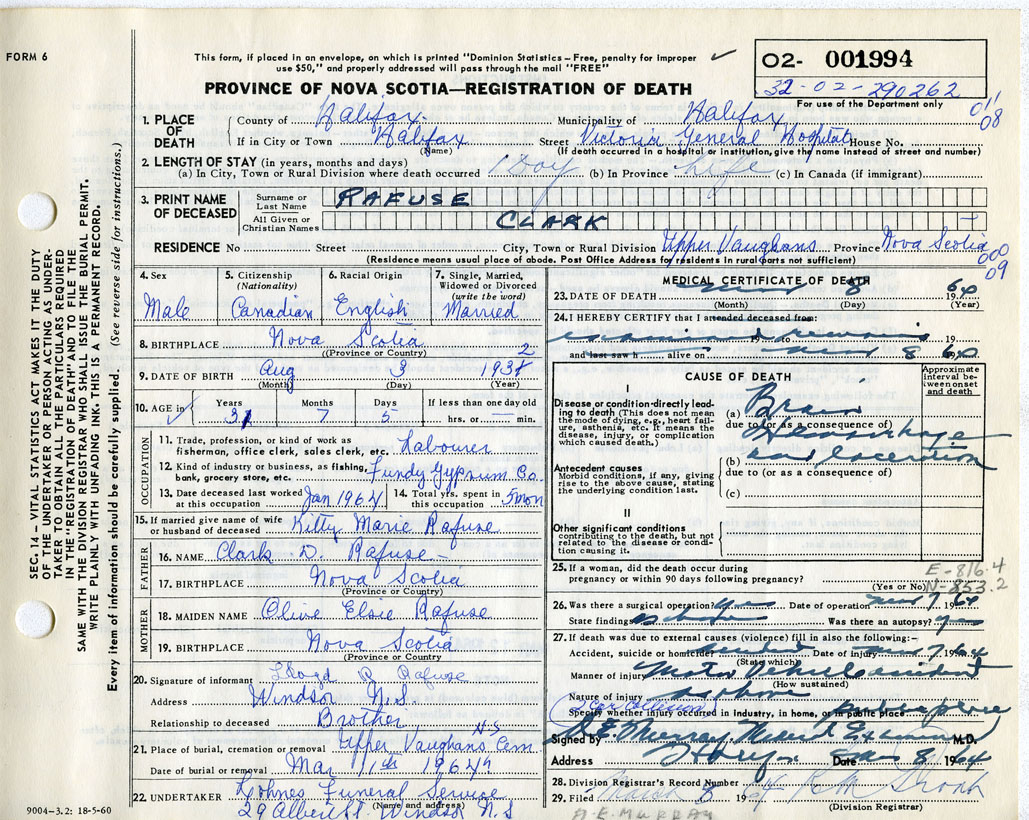 FORM 6
This form, if placed in an envelope, on which is printed "Dominion Statistics – Free, penalty for improper
use $50," and properly addressed will pass through the mail "FREE"
O2- 001994
32-02-290262
For use of the Department only
PROVINCE OF NOVA SCOTIA—REGISTRATION OF DEATH
011
08
1. PLACE OF DEATH
County of Halifax Municipality of Halifax
If in City or Town Halifax Street Victoria General Hospital House No.
(Name) (If death occurred in a hospital or institution, give the name instead of street and number)
2. LENGTH OF STAY (in years, months and days)
(a) In City, Town or Rural Division where death occurred 1 Day (b) In Province Life (c) In Canada (if immigrant)
3. PRINT NAME OF DECEASED
Surname or Last Name RAFUSE
All Given or Christian Names CLARK
RESIDENCE No Street City, Town or Rural Division Upper Vaughans Province Nova Scotia
(Residence means usual place of abode. Post Office Address for residents in rural parts not sufficient)
000
09
4. Sex Male
5. Citizenship (Nationality) Canadian
6. Racial Origin English
7. Single, Married, Widowed or Divorced (write the word) Married
8. BIRTHPLACE Nova Scotia
(Province or Country)
9. DATE OF BIRTH Aug 3 1932
(Month) (Day) (Year)
10. AGE in Years 31 Months 7 Days 5 If less than one day old hrs. or min.
OCCUPATION
11. Trade, profession, or kind of work as fisherman, office clerk, sales clerk, etc. Labourer
12. Kind of industry or business, as fishing, bank, grocery store, etc. Fundy Gypsum Co.
13. Date deceased last worked at this occupation Jan 1964 14. Total yrs. spent in this occupation 5 mon
15. If married give name of wife or husband of deceased Kitty Marie Rafuse
FATHER
16. NAME Clark D. Rafuse
17. BIRTHPLACE Nova Scotia
(Province or Country)
MOTHER
18. MAIDEN NAME Olive Elsie Rafuse
19. BIRTHPLACE Nova Scotia
(Province or Country)
20. Signature of informant Lloyd R Rafuse
Address Windsor N.S.
Relationship to deceased Brother
21. Place of burial, cremation or removal Upper Vaughans Cem. N.S
Date of burial or removal Mar 11th 1964
22. UNDERTAKER Lohnes Funeral Service
(Name and address)
29 Albert St. Windsor N.S
9004–3.2: 18-5-60
MEDICAL CERTIFICATE OF DEATH
23. DATE OF DEATH 8 1964
(Month) (Day) (Year)
24. I HEREBY CERTIFY that I attended deceased from:
examined remains 19 to 19
and last saw h alive on 8 64
CAUSE OF DEATH
Approximate interval between onset and death
I
Disease or condition directly leading to death (This does not mean the mode of dying, e.g., heart failure, asthenia, etc. It means the disease, injury, or complication which caused death.)
(a) Brain
due to (or as a consequence of)
Hemorrhage
(b) and laceration
due to (or as a consequence of)
(c)
Antecedent causes
Morbid conditions, if any, giving rise to the above cause, stating the underlying condition last.
II
Other significant conditions contributing to the death, but not related to the disease or condition causing it.
25. If a woman, did the death occur during pregnancy or within 90 days following pregnancy? (Yes or No)
E-816.4
N-853.2
26. Was there a surgical operation? yes Date of operation 7 1964
State findings as above Was there an autopsy? yes
27. If death was due to external causes (violence) fill in also the following:-
Accident, suicide or homicide accident Date of injury 7 1964
(State which)
Manner of injury Motor Vehicle accident
(How sustained)
Nature of injury as above
(Car Collision)
Specify whether injury occurred in industry, in home, or in public place public place
Signed by D.E. Murray Medical Examiner M.D.
Address Date 8 1964
28. Division Registrar's Record Number
29. Filed March 8 1964
(Division Registrar)
D.E. MURRAY
SEC. 14 – VITAL STATISTICS ACT MAKES IT THE DUTY
OF THE UNDERTAKER OR PERSON ACTING AS UNDER-
TAKER TO OBTAIN ALL THE PARTICULARS REQUIRED
IN THE "REGISTRATION OF DEATH" AND TO FILE THE
SAME WITH THE DIVISION REGISTRAR WHO SHALL ISSUE THE BURIAL PERMIT.
WRITE PLAINLY WITH UNFADING INK. THIS IS A PERMANENT RECORD.
Every item of information should be carefully supplied. (See reverse side for instructions.)